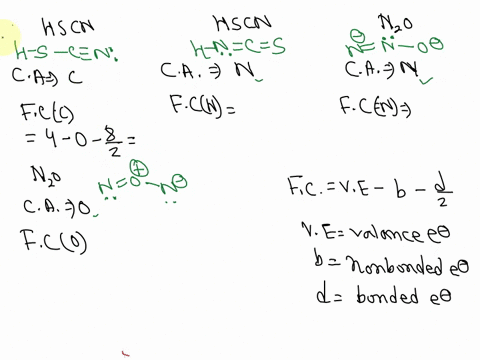 HSCN
H-S-C≡N:
C.A⇒ C
F.C(C)
= 4-0-8/2=
HSCN
H-N=C=S
C.A.⇒ N
F.C(N)=
N2O
N⊖=N-O⊖
C.A.⇒N
F.C(N)⇒
N2O
N=O⊕-N⊖
C.A.⇒O
F.C(O)
F.C.=V.E-b-d/2
V.E=valance e⊖
b=nonbonded e⊖
d= bonded e⊖